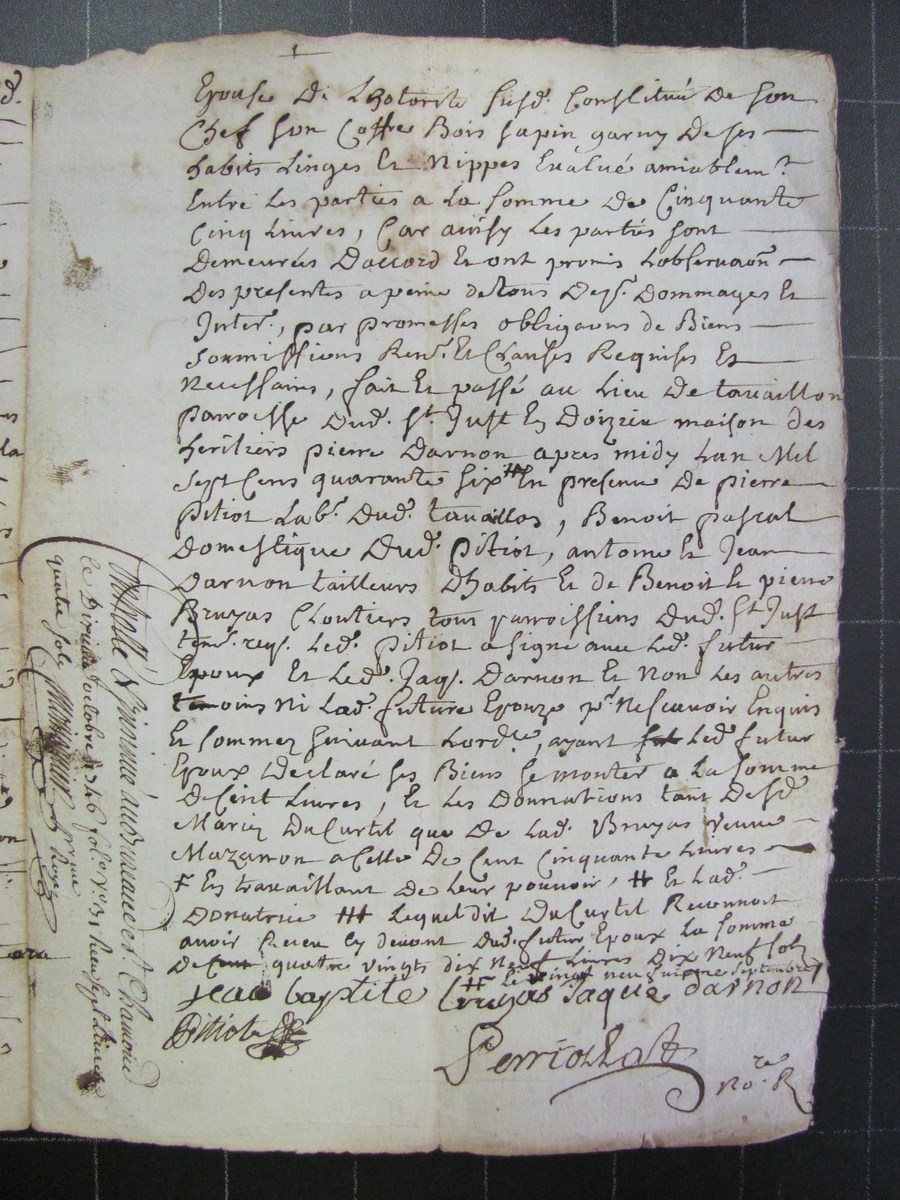 Epouse De Lhotorite susd. Constitué De son
Chef son Coffre Bois sapin garny De ses
habits Linges Et Nippes Evalué amiablemt.
Entre Les parties a La somme De Cinquante
Cinq Livres, Car ainsy Les parties sont
Demeurées Daccord Et ont promis Lobservaon
Des presentes a peine de tous Desp. Dommages Et
Inter., par promesses obligaons de Biens
soumissions Ren. Et Clauses Requises Et
Necessaires, fait Et passé au Lieu De tavaillon
parroisse Dud. St. Just En Doizieu maison des
heritiers pierre Darnon apres midy Lan Mil
sept Cens quarante six ++ En presence De pierre
Pitiot Lab. Dud. tavaillon, Benoit pascal
Domestique Dud. Pitiot, antoine Et Jean
Darnon tailleurs Dhabits Et de Benoit Et pierre
Bruyas Cloutiers tous parroissiens Dud. St. Just
tem. req. Led. Pitiot a signé avec Led. futur
Epoux Et Led. Jaq. Darnon Et Non Les autres
temoins Ni Lad. future Epouze pr. Ne scavoir Enquis
Et sommez suivant Lord.ce, ayant Led. futur
Epoux Declaré ses Biens se monter a La somme
De Cent Livres, Et Les Donnations tant De sd.
Marie DuCurtil que De Lad. Bruyas veuve
Mazanon a Celle De Cent Cinquante Livres
+ En travaillant De Leur pouvoir, ++ Et Lad.
Donatrice +++ Lequel dit DuCurtil Reconnoit
avoir Receu Cy devant Dud. futur Epoux La somme
De quatre vingts Dix Neuf Livres Dix Neuf sols
++ Le vingt neuf septembre
jean baptite Bruyas Jaque darnon
Pitiot
Perrichat
No.re R.
Controllé & Insinué au Bureau de St. Chamond
Le Octobre 1746 fol. Vo. 3 Receu sept Livres
quatre sols